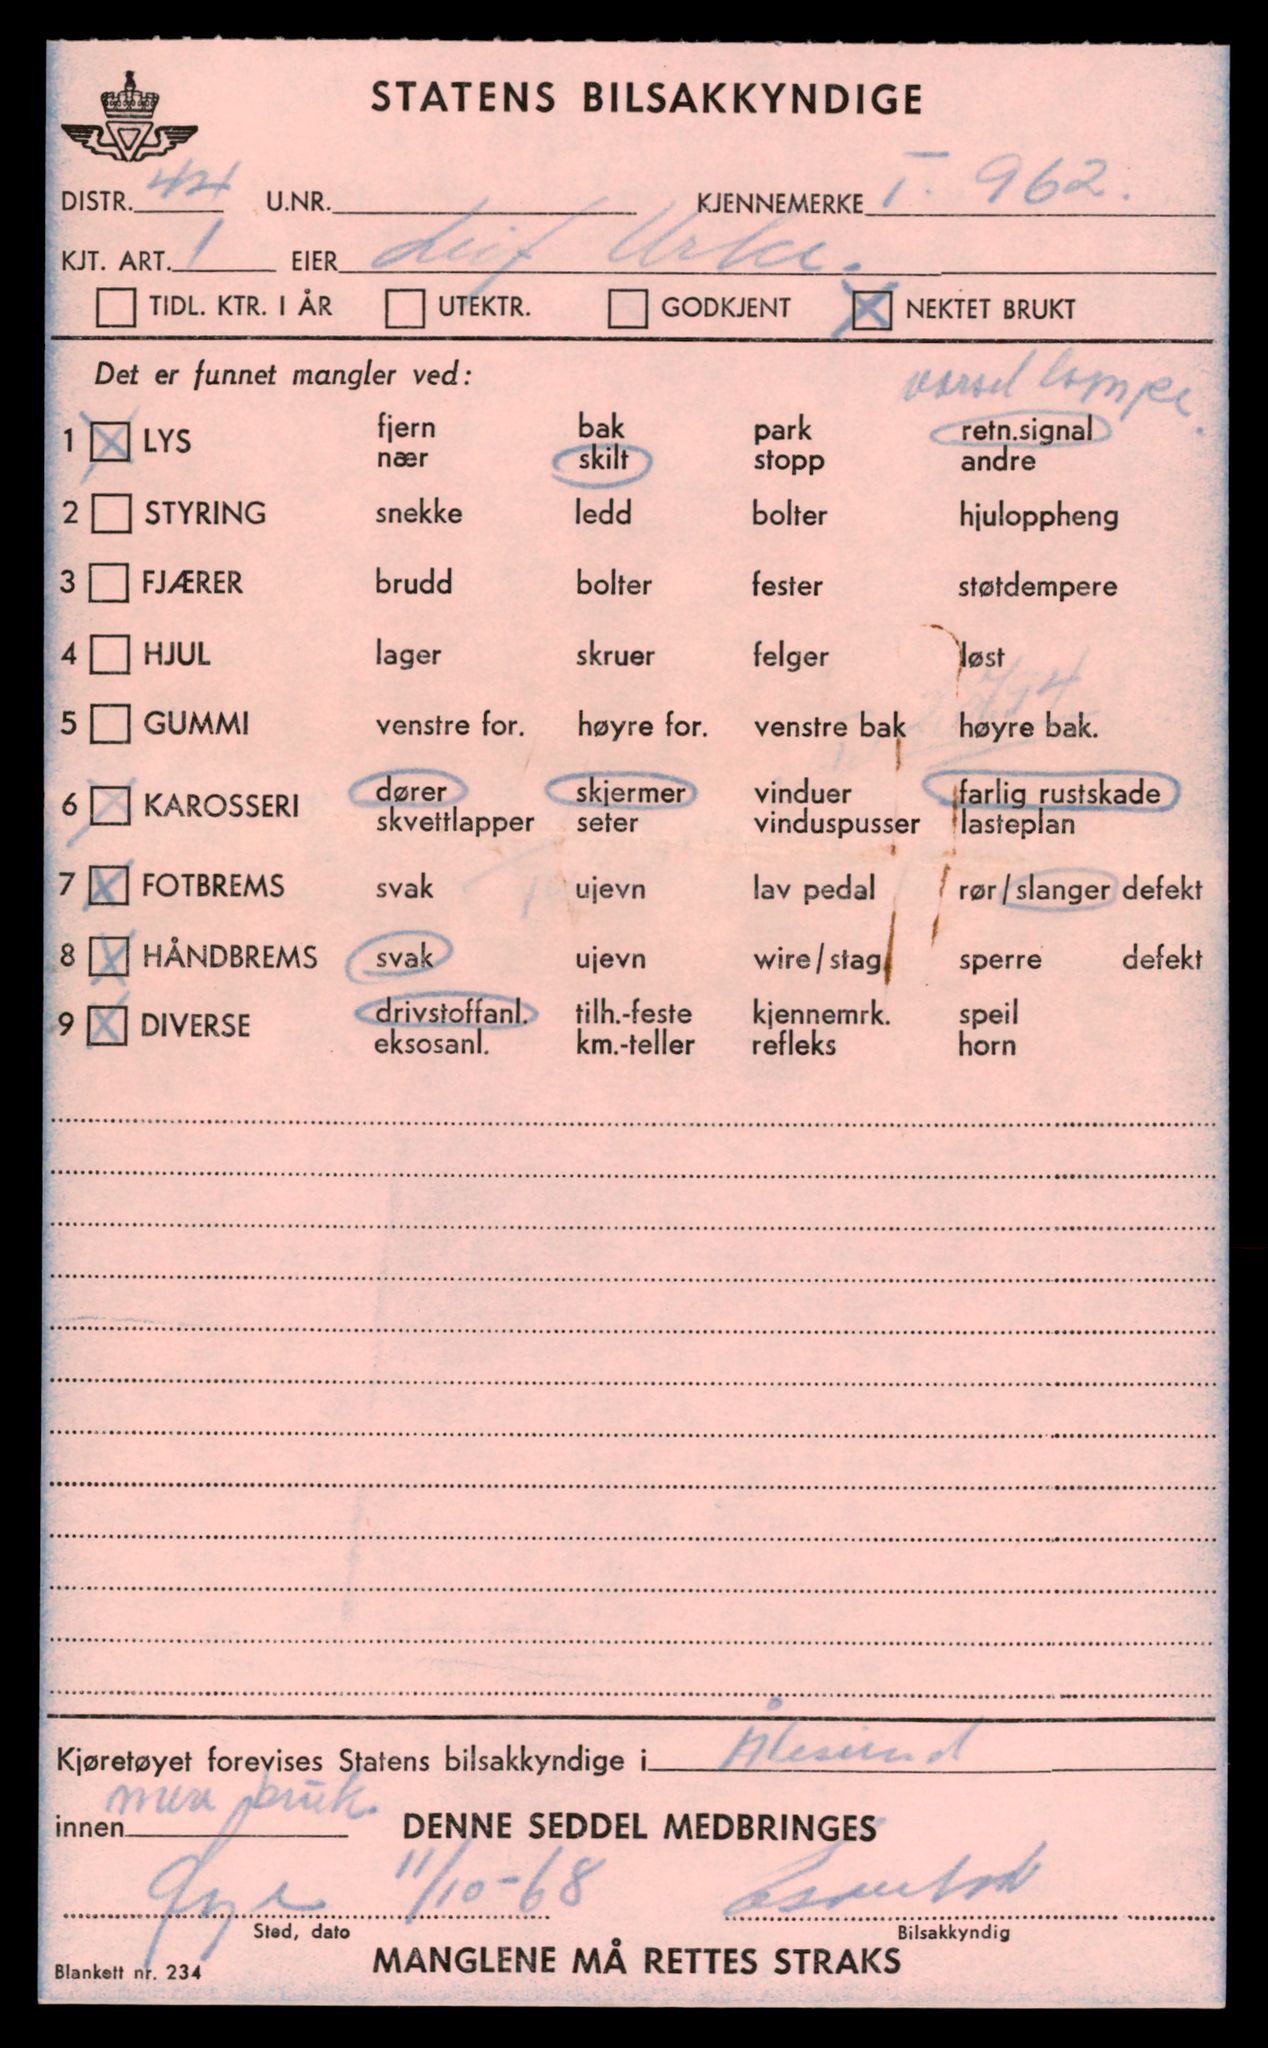 STATENS BILSAKKYNDIGE
DISTR. 44 U.NR. KJENNEMERKE T. 962.
KJT. ART. 1 EIER Leif Urke.
TIDL. KTR. I ÅR UTEKTR. GODKJENT NEKTET BRUKT
Det er funnet mangler ved: varsel lampe.
1 LYS fjern bak park retn.signal
nær skilt stopp andre
2 STYRING snekke ledd bolter hjuloppheng
3 FJÆRER brudd bolter fester støtdempere
4 HJUL lager skruer felger løst
5 GUMMI venstre for. høyre for. venstre bak høyre bak.
6 KAROSSERI dører skjermer vinduer farlig rustskade
skvettlapper seter vinduspusser lasteplan
7 FOTBREMS svak ujevn lav pedal rør/slanger defekt
8 HÅNDBREMS svak ujevn wire/stag sperre defekt
9 DIVERSE drivstoffanl. tilh.-feste kjennemrk. speil
eksosanl. km.-teller refleks horn
Kjøretøyet forevises Statens bilsakkyndige i Ålesund
innen mere bruk. DENNE SEDDEL MEDBRINGES
11/10-68
Sted, dato Bilsakkyndig
Blankett nr. 234 MANGLENE MÅ RETTES STRAKS